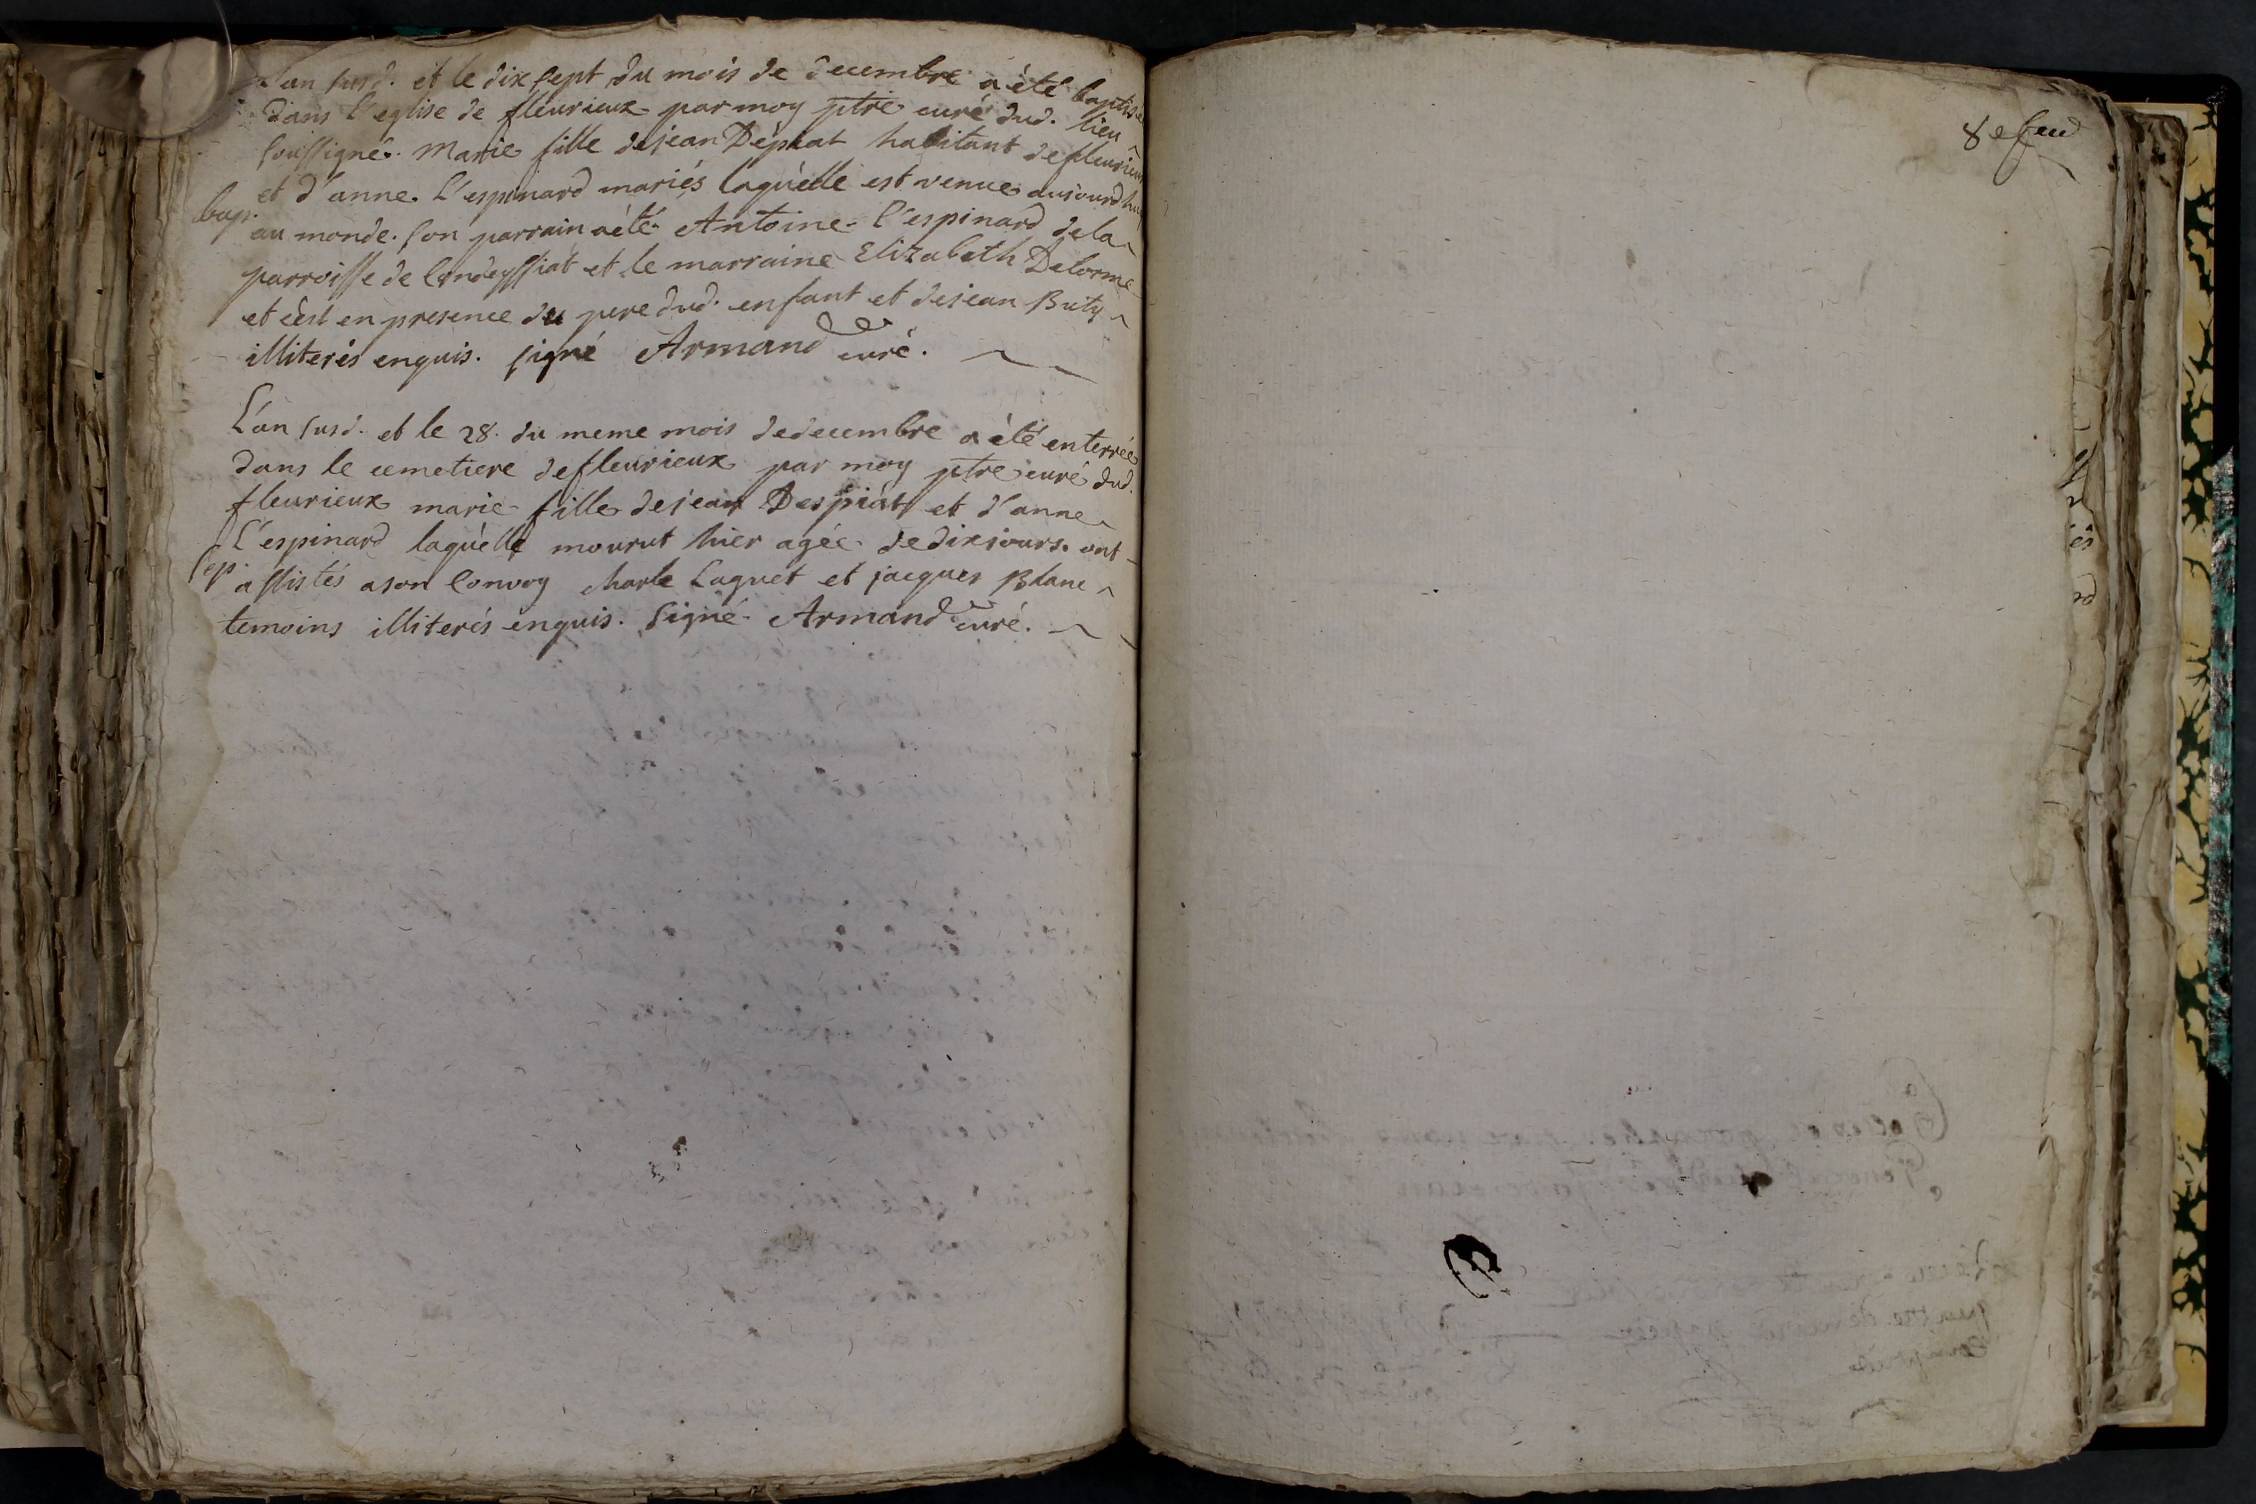 L'an susd. et le dix sept du mois de decembre a été baptisée
dans l'eglise de fleurieux par moy ptre curé dud. lieu
soussigné. Marie fille de jean Depiat habitant de fleurieux
et d'anne L'espinard mariés laquelle est venue aujourd'hui
bap. au monde. son parrain a été Antoine l'espinard de la
parroisse de Condeyssiat et le marraine Elizabeth Delorme
et c'est en presence du pere dud. enfant et de jean Buty
illiterés enquis. signé Armand curé.
L'an susd. et le 28. du meme mois de decembre a été enterrée
dans le cemetiere de fleurieux par moy ptre curé dud.
fleurieux marie fille de jean Despiat et d'anne
L'espinard laquelle mourut hier agée de dix jours. ont
sep. assistés a son Convoy Charle Laguet et jacques Blanc
temoins illiterés enquis. signé Armand curé.
8e